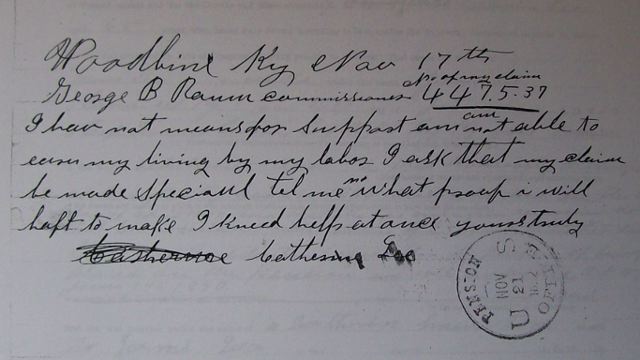 Woodbine Ky Nov 17th
No of my claim
George B Raum commissioner 447537
I hav not means for support am am not able to
earn my living by my labor I ask that my claim
be made speciaul tel me no what proof i will
haft to make I kneed help at once yours truly
Catherine Catherine
PENSION
U S
NOV